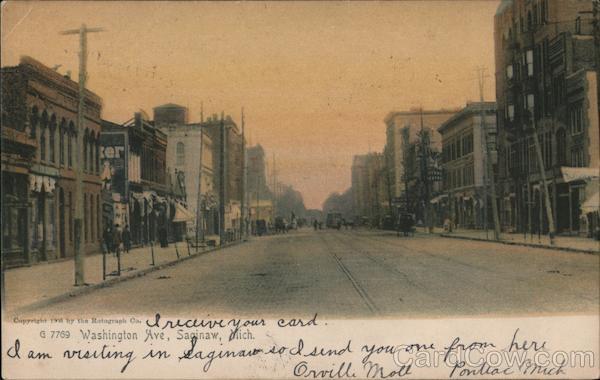 Copyright 1905 by the Rotograph Co.
G 7769 Washington Ave, Saginaw, Mich.
I receive your card.
I am visiting in Saginaw so I send you one from here
Orville Mott Pontiac Mich
CardCow.com